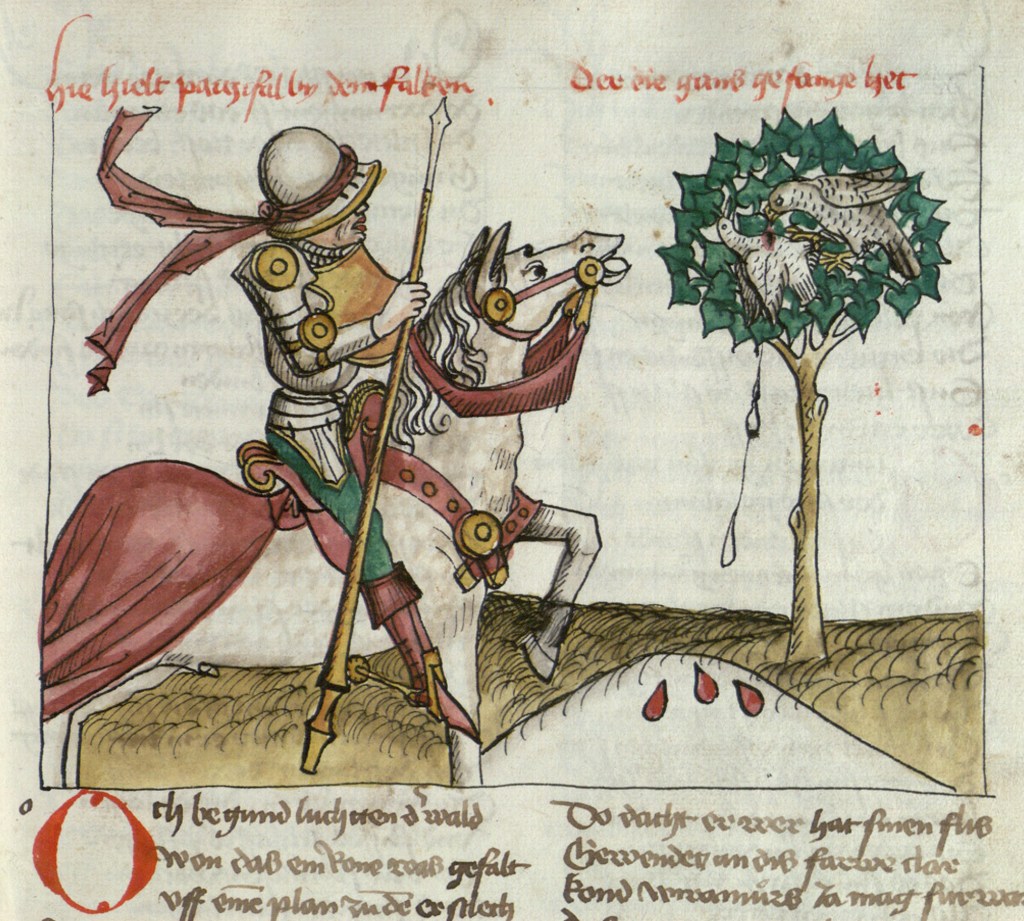 hie hielt partzifal by dem falken
Der die gans gefange het
Och begund luchten d wald
won das ein rone was gefalt
vff eine plan zu de er slech
Do dacht er wer hat sinen flis
Gewendet an dis farwe clar
kond wiramurs Ia mag fur